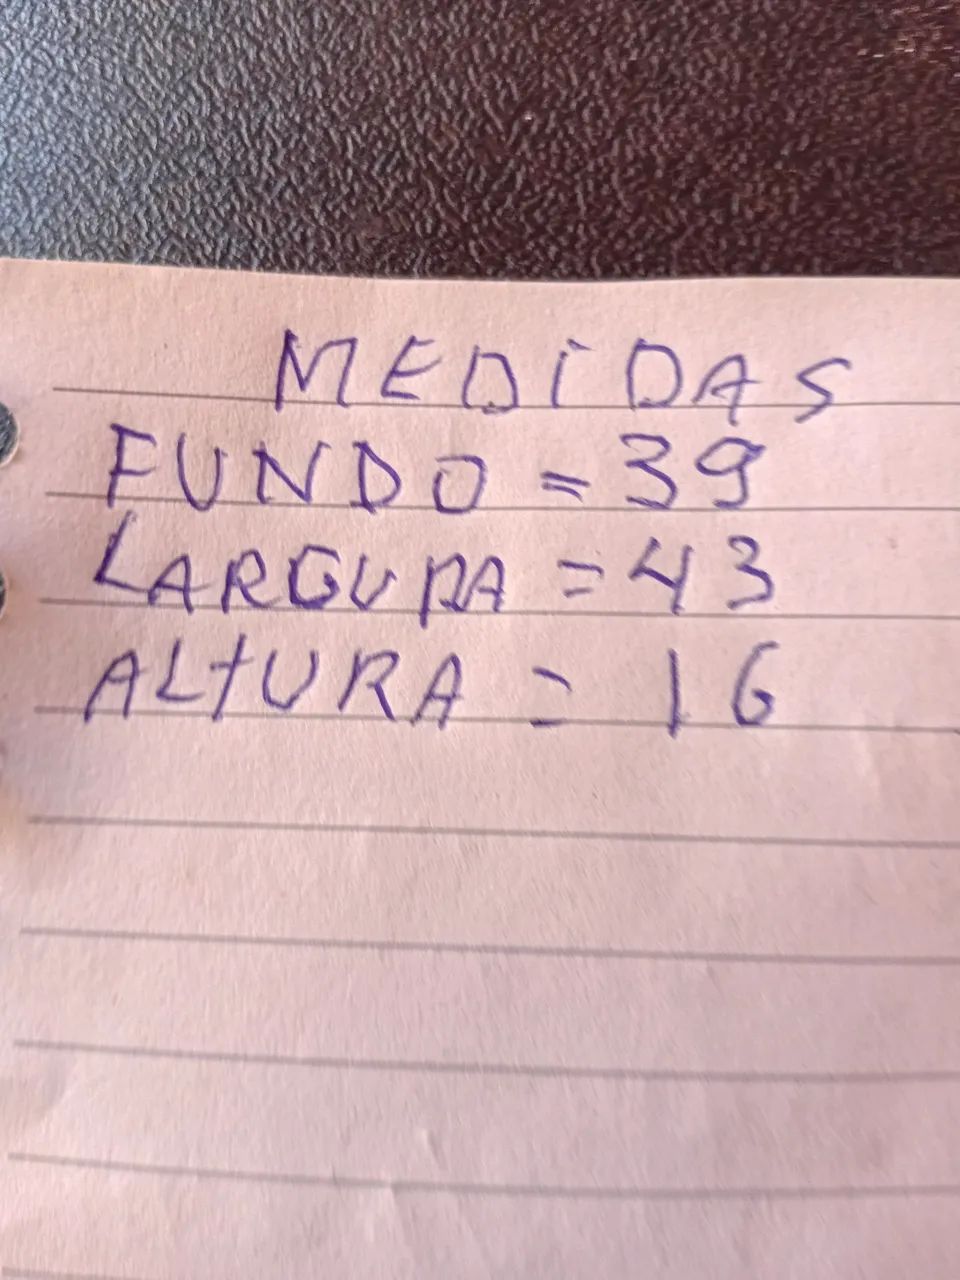 MEDIDAS
FUNDO = 39
LARGURA = 43
ALTURA = 16